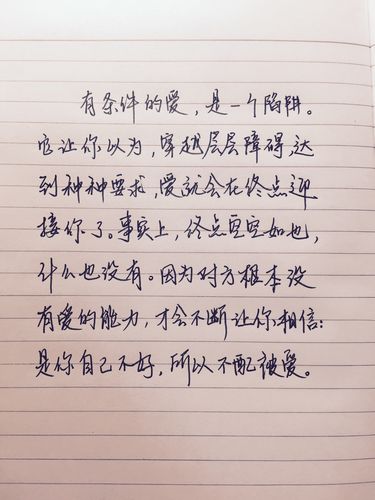 有条件的爱，是一个陷阱。
它让你以为，穿越层层障碍，达
到种种要求，爱就会在终点迎
接你了。事实上，终点空空如也，
什么也没有。因为对方根本没
有爱的能力，才会不断让你相信：
是你自己不好，所以不配被爱。